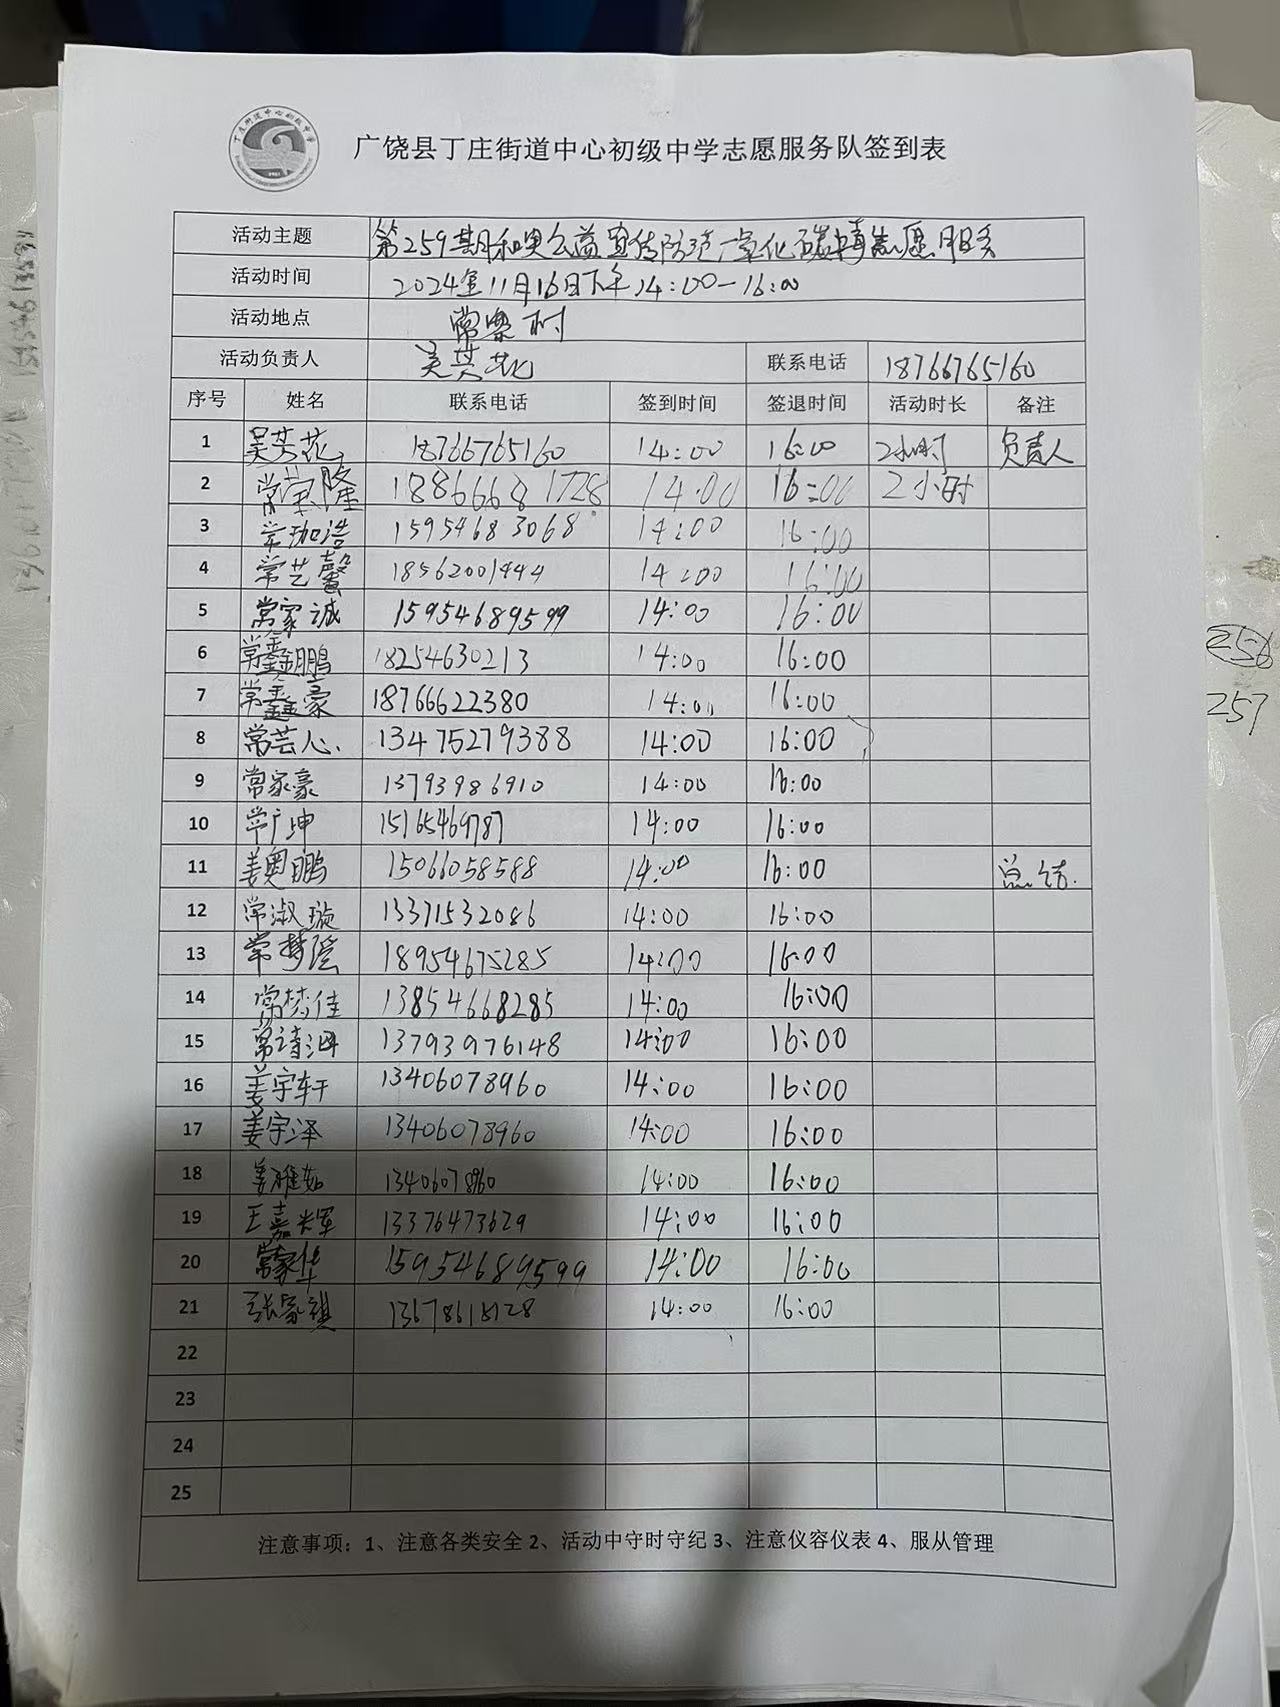 广饶县丁庄街道中心初级中学志愿服务队签到表
活动主题 第259期和奥公益宣传防范一氧化碳中毒志愿服务
活动时间 2024年11月16日下午14:00-16:00
活动地点 常寨村
活动负责人 吴芙花 联系电话 18766765160
序号 姓名 联系电话 签到时间 签退时间 活动时长 备注
1 吴芙花 18766765160 14:00 16:00 2小时 负责人
2 常荣隆 18866681728 14:00 16:00 2小时
3 常珈浩 15954683068 14:00 16:00
4 常艺馨 18562001444 14:00 16:00
5 常家诚 15954689599 14:00 16:00
6 常鑫鹏 18254630213 14:00 16:00
7 常鑫豪 18766622380 14:00 16:00
8 常芸心 13475279388 14:00 16:00
9 常家豪 13793986910 14:00 16:00
10 常广坤 15165469787 14:00 16:00
11 姜奥鹏 15066058588 14:00 16:00 总结.
12 常淑璇 13371532086 14:00 16:00
13 常梦瑶 18954675285 14:00 16:00
14 常梦佳 13854668285 14:00 16:00
15 常诗涵 13793976148 14:00 16:00
16 姜宇轩 13406078960 14:00 16:00
17 姜宇泽 13406078960 14:00 16:00
18 姜雅茹 13406078960 14:00 16:00
19 王嘉辉 13376473629 14:00 16:00
20 常家华 15954689599 14:00 16:00
21 张家祺 14:00 16:00
22
23
24
25
注意事项：1、注意各类安全 2、活动中守时守纪 3、注意仪容仪表 4、服从管理
256
257